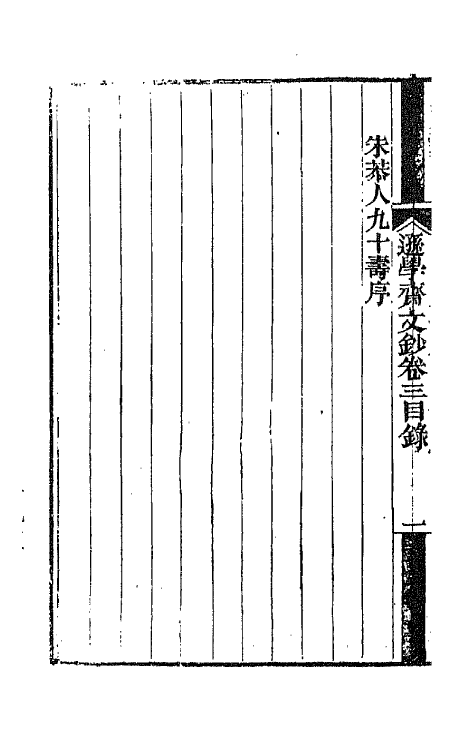 朱恭人九十壽序
遜學齋文鈔卷三目錄
一